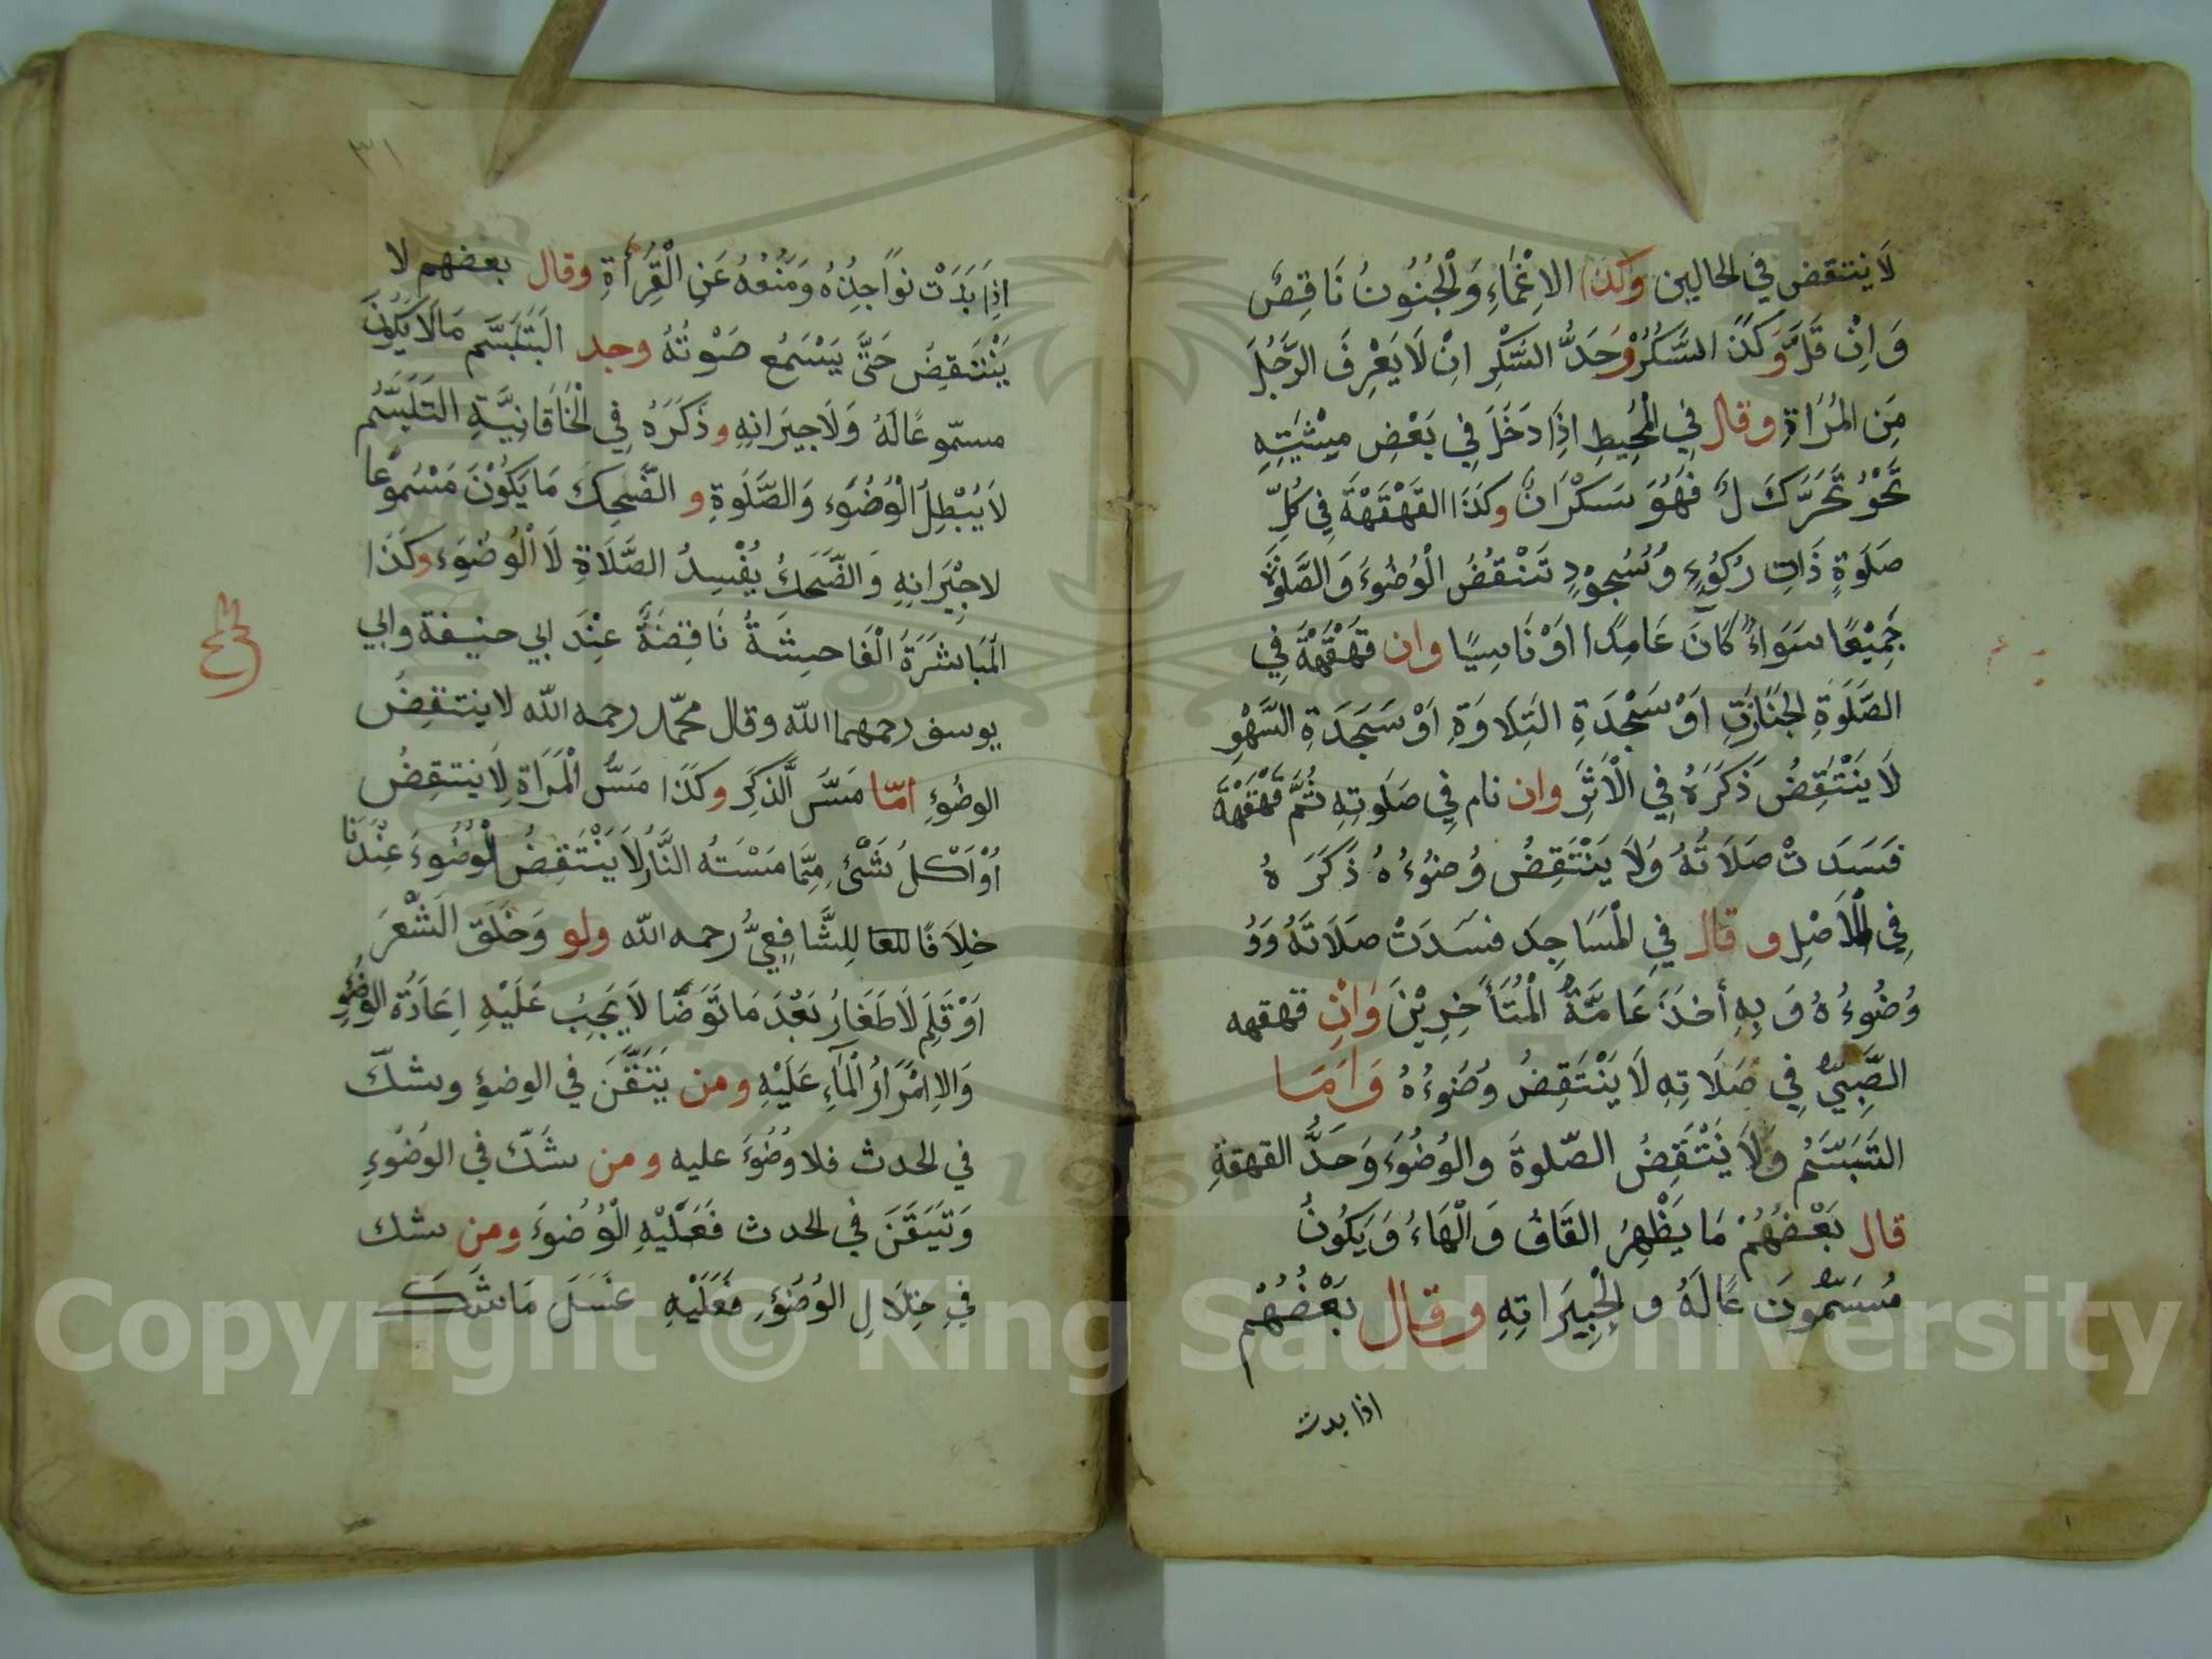 لَا ينتقض في الحالين وكذا الاِغْمَاءِ وَالْجُنُونُ نَاقِصٌ
وَاِنْ قَلَّ وَكَذَ السَّكْرُ وَحَدُّ السَّكْرِ انْ لَا يَعْرِفَ الرَّجُلَ
مِنَ المْرَاةِ وقال فِي الْمُحِيطِ اِذَا دَخَلَ فِي بَعْضِ مِشْيَتِهِ
نَحْوُ تَحَرُّكَ لَ فَهُوَ سَكْرَانٌ وكَذَا القَهْقَهْةَ فِي كُلِّ
صَلَوةٍ ذَاتِ رُكُوُءٍ وَسُجوُدٍ تَنْقُضُ الْوُضُوءَ وَالصَّلَوةَ
جَمِيْعًا سَوَاءٌ كَانَ عَامِدًا اَوْ نَاسِيًا وان قَهْقَهْةَ فِي
الصَّلَوةِ الجَنَازَةِ اَوْ سَجْدَةِ التِلَاوَةِ اَوْ سَجَدَةِ السَّهْوِ
لَا يَنْتَقِضُ ذَكَرَهُ فِي الْاَثَرِ وان نام فِي صَلَوتِهِ ثُمَّ قَهْقَهْةَ
فَسَدَتْ صَلَاتُهُ وَلَا يَنْتَقِضُ وُضوُءُهُ ذَكَرَهُ
فِي الْاَصْلِ و قال فِي الْمَسَاجِد فسَدَتْ صَلَاتَهُ وَوُ
وُضُوءُهُ وَ بِهِ أخذَ عَامَّةُ الْمُتَأَخِرِيْنَ وَانْ قهقهه
الصَّبِيُّ فِي صَلَاتِهِ لَا يَنْتَقِضُ وُضوُءُهُ وَاَمَا
التَبَسَّمُ وَلَا يَنْتَقِضُ الصّلوةَ والوُضُوَءَ وَحَدُّ القهقةِ
قال بَعْضُهُمْ مَا يَظْهِرُ القَافُ وَ الْهَاءُ وَيَكُونُ
مُسَمّوُنَ عًا لَهُ و لِجِيرَانِهِ و قال بَعْضُهُمْ
اذا بدت
٣١
اِذَا بَدَتْ نوَاجِذُهُ وَمَنَعُهُ عَنِ الْقِرُأَةِ وقال بعضهم لا
يَنْتَقِضُ حَتَّى يَسْمَعُ صَوْتُهُ وحد التَبَسَّم مَالَا يَكوُنَ
مسمّوعًا لَهُ وَلَا جِيَرانِهِ وذَكَرَهُ فِي الْخَاقَانِيَّةِ التَبَسَّم
لَا يُبْطِلَ الْوُضُوَءِ وَالصَّلَوةِ و الضَّحِكَ مَا يَكَوُنَ مَسْمُوعًا
لا جِيْرَانِهِ وَالضَّحَكُ يُفْسِدُ الصَّلَاةِ لَا الْوُضُوَءِ وكَذَا
الْمُبَاشَرَةَ الْفَاحشَةُ نَاقِضَةٌ عِنْدَ ابي حنيفة وابي
يوسف رحمهما اللّٰه وقال محمّد رحمه اللّٰه لا ينتقِضُ
الوضُوءِ امّا مَسَّ الَّذكَرِ وكَذَا مَسُّ الْمَرَاة لَا ينتقِضُ
اَوْ اَكلُ شَئٍْ مِمَّا مَسْتهُ النَّارُ لَا يَنْتَقِضُ الْوُضُوءَ عِنْدَنَا
خِلَافًا لِلشَّافِعِيُّ رحمه اللّٰه ولو وَحَلَقَ الشَّعْرَ
اَوْ قَلِمَ لَاطَفَارُ بَعْدَ مَا تَوَضَّا لَا يَجِبُ عَلَيْهِ اِعَادَةُ الوضُوءِ
وَالاِ امْرَارُ الْمَآءِ عَلَيْهِ ومن يَتَقَّنَ في الوضوءِ وشكّ
في الحدث فلا وُضُوَءَ عليه ومن شَكّ في الوُضُوءِ
وَتَيَقَنَ في الحدث فَعَلَيْهِ الْوُضُوَء ومن شك
في خِلَالِ الوُضُوءِ فَعَلَيْهِ غَسَلَ مَا شَكَ